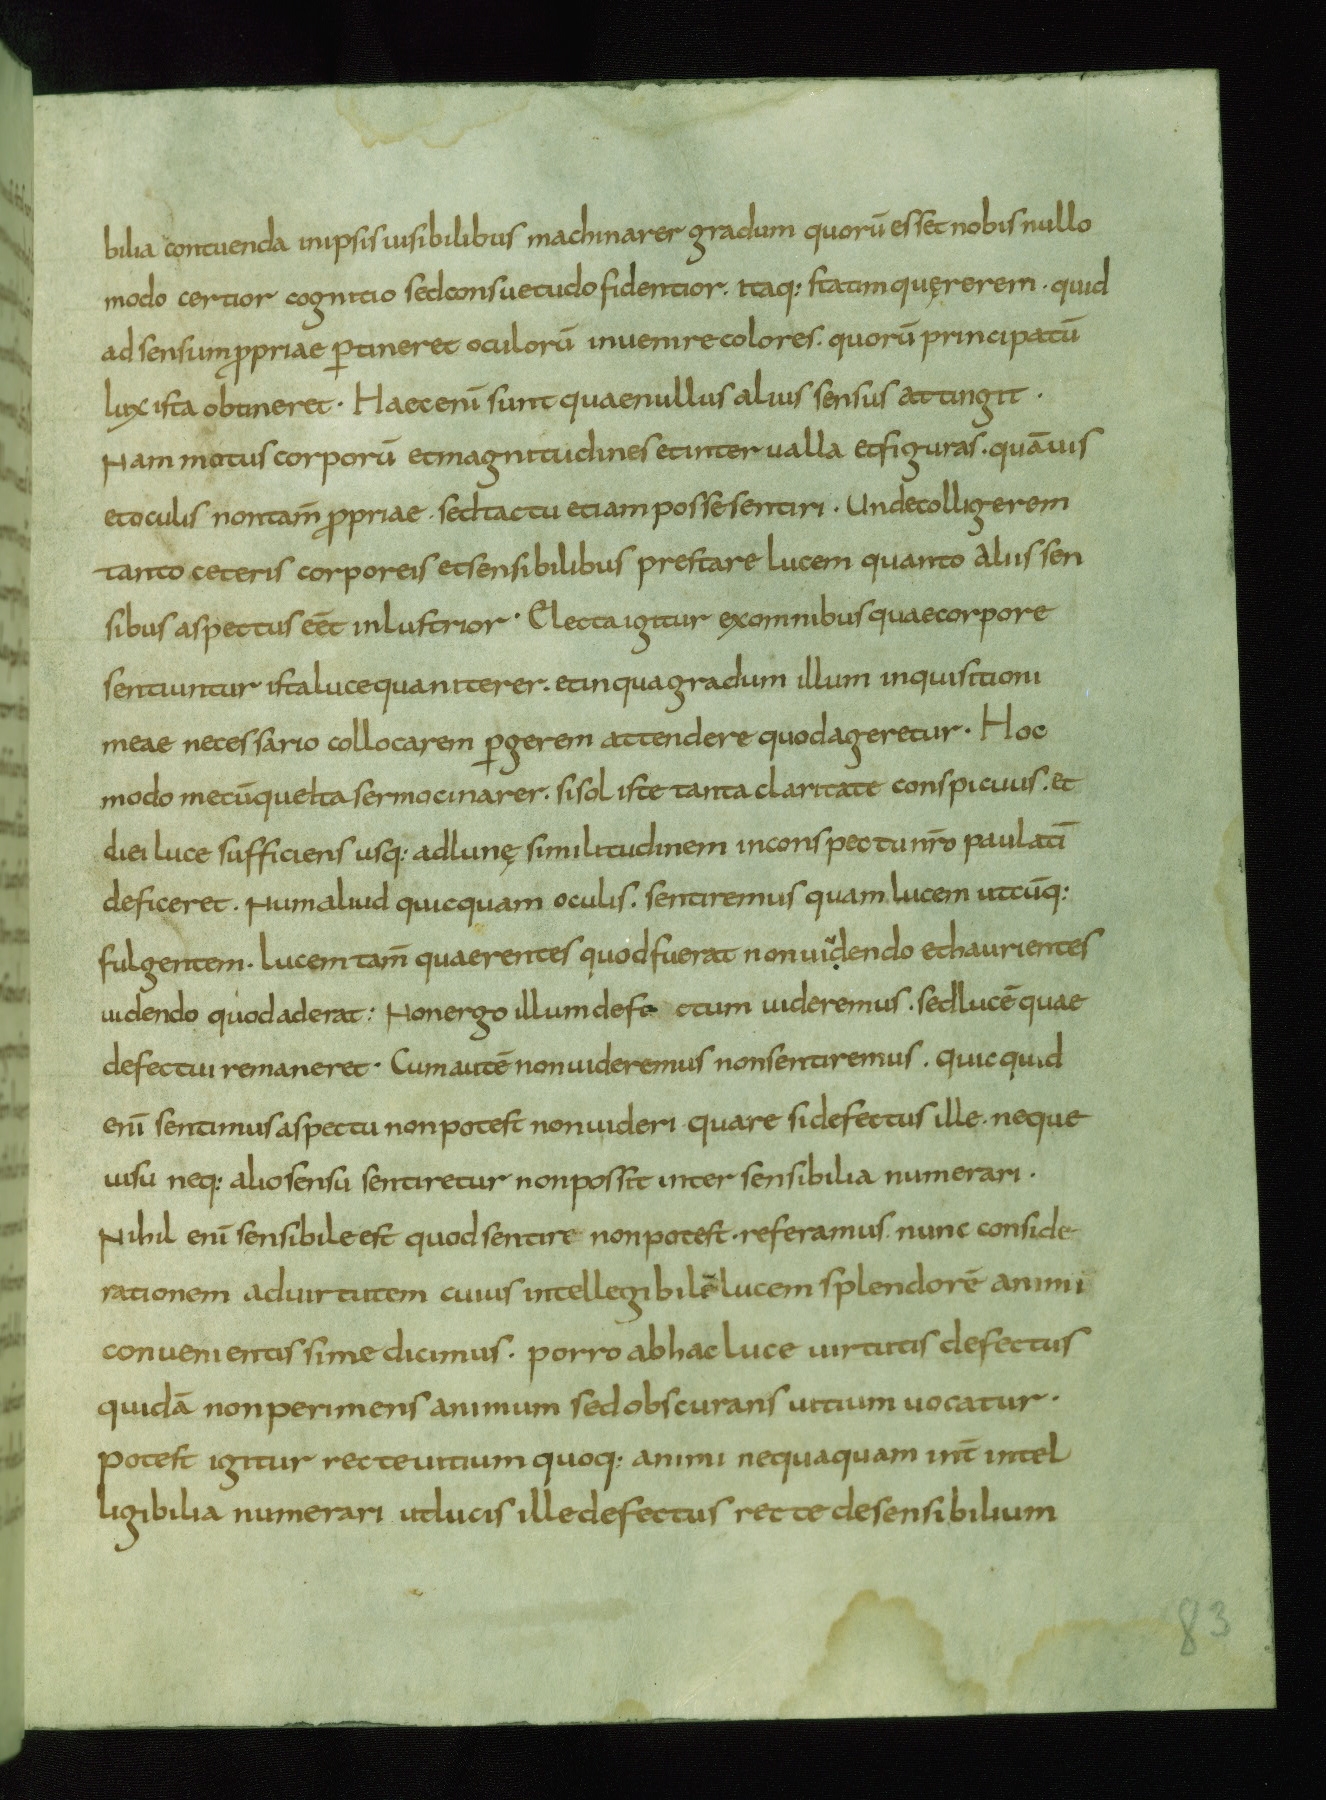 bilia contuenda inipsis uisibilibus machinarer gradum quorū esset nobis nullo
modo certior cognitio sed consuetudo fidentior. Itaq: statim quęrerem. quid
ad sensum ꝓpriae ꝑtineret oculorū inuenire colores. quorū principatū
lux ista obtineret. Haec enī sunt quae nullus alius sensus attingit.
Nam motus corporū et magnitudines et interualla et figuras. quāuis
et oculis non tam̄ ꝓpriae. sed tactu etiam posse sentiri. Unde colligerem
tanto ceteris corporeis et sensibilibus prestare lucem quanto aliis sen
sibus aspectus eēt inlustrior. Electa igitur ex omnibus quae corpore
sentiuntur ista luce qua niterer. et in qua gradum illum inquisitioni
meae necessario collocarem ꝑgerem attendere quod ageretur. Hoc
modo mecū que ita sermocinarer. si sol iste tanta claritate conspicuus. et
diei luce sufficiens usq: ad lunę similitudinem in conspectu nr̄o paulatī
deficeret. Num aliud quicquam oculis. sentiremus quam lucem utcūq:
fulgentem. lucem tam̄ quaerentes quod fuerat non uidendo et haurientes
uidendo quod aderat: Non ergo illum defe ctum uideremus. sed lucē quae
defectui remaneret. Cum autē non uideremus non sentiremus. quic quid
enī sentimus aspectu non potest non uideri quare si defectus ille. neque
uisu neq: alio sensu sentiretur non possit inter sensibilia numerari.
Nihil enī sensibile est quod sentire non potest. referamus nunc conside
rationem ad uirtutem cuius intellegibilē lucem splendorē animi
conuenientissime dicimus. porro ab hac luce uirtutis defectus
quidā non perimens animum sed obscurans uitium uocatur.
potest igitur recte uitium quoq: animi nequaquam int̄ intel
ligibilia numerari ut lucis ille defectus recte de sensibilium
83